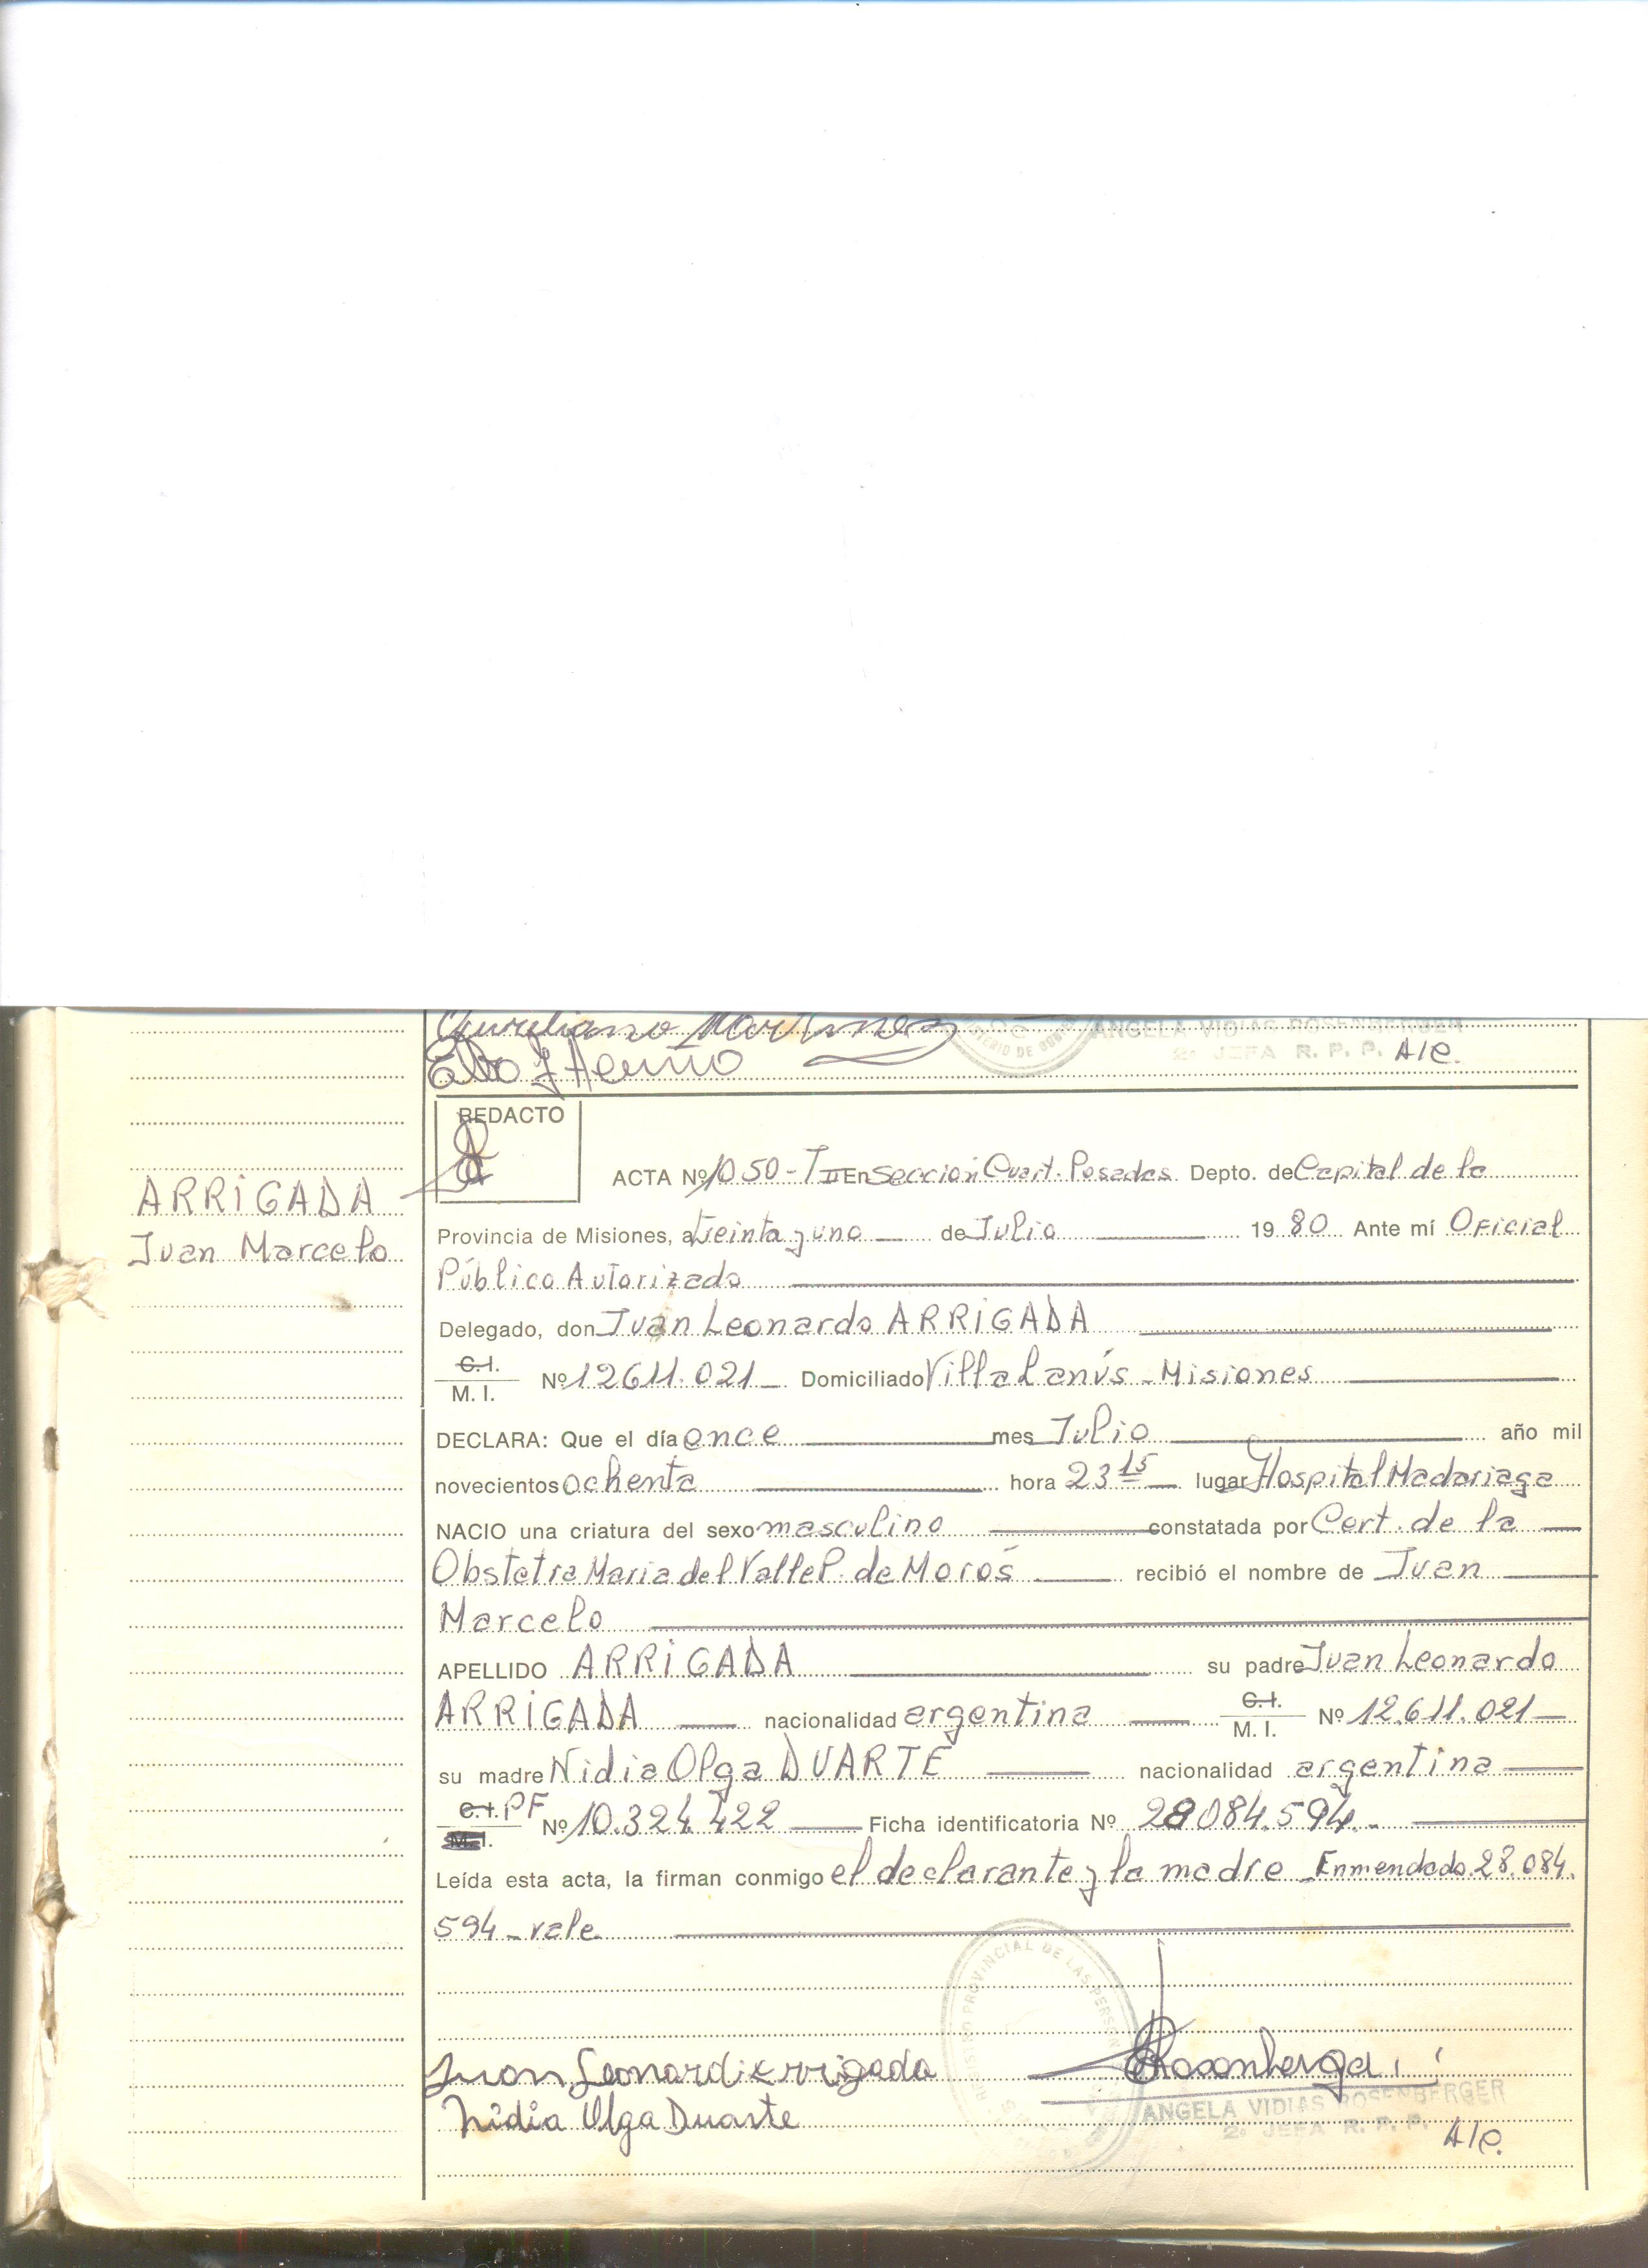 Aureliano Martinez
ANGELA VIDIAS ROSENBERGER
2a JEFA R. P. P. A/C.
REDACTO
ACTA Nº 1050 - T II En Sección Cuart. Posadas Depto. de Capital de la
ARRIGADA
Juan Marcelo
Provincia de Misiones, a treinta y uno de Julio 19 80 Ante mí Oficial
Público Autorizado
Delegado, don Juan Leonardo ARRIGADA
C.I.
M. I. Nº 12611.021 Domiciliado Villa Lanús - Misiones
DECLARA: Que el día once mes Julio año mil
novecientos ochenta hora 23 15 lugar Hospital Madariaga
NACIO una criatura del sexo masculino constatada por Cert. de la
Obstetra Maria del Valle P. de Moros recibió el nombre de Juan
Marcelo
APELLIDO ARRIGADA su padre Juan Leonardo
ARRIGADA nacionalidad argentina C.I. M. I. Nº 12.611.021
su madre Nidia Olga DUARTE nacionalidad argentina
C.I. PF
M. I. Nº 10.324.422 Ficha identificatoria Nº 28084.594.-
Leída esta acta, la firman conmigo el declarante y la madre - Enmendado 28.084.
594 - vale
REGISTRO PROVINCIAL DE LAS PERSONAS
Juan Leonardo Arrigada
Nidia Olga Duarte
ANGELA VIDIAS ROSENBERGER
2a JEFA R. P. P.
A/C.